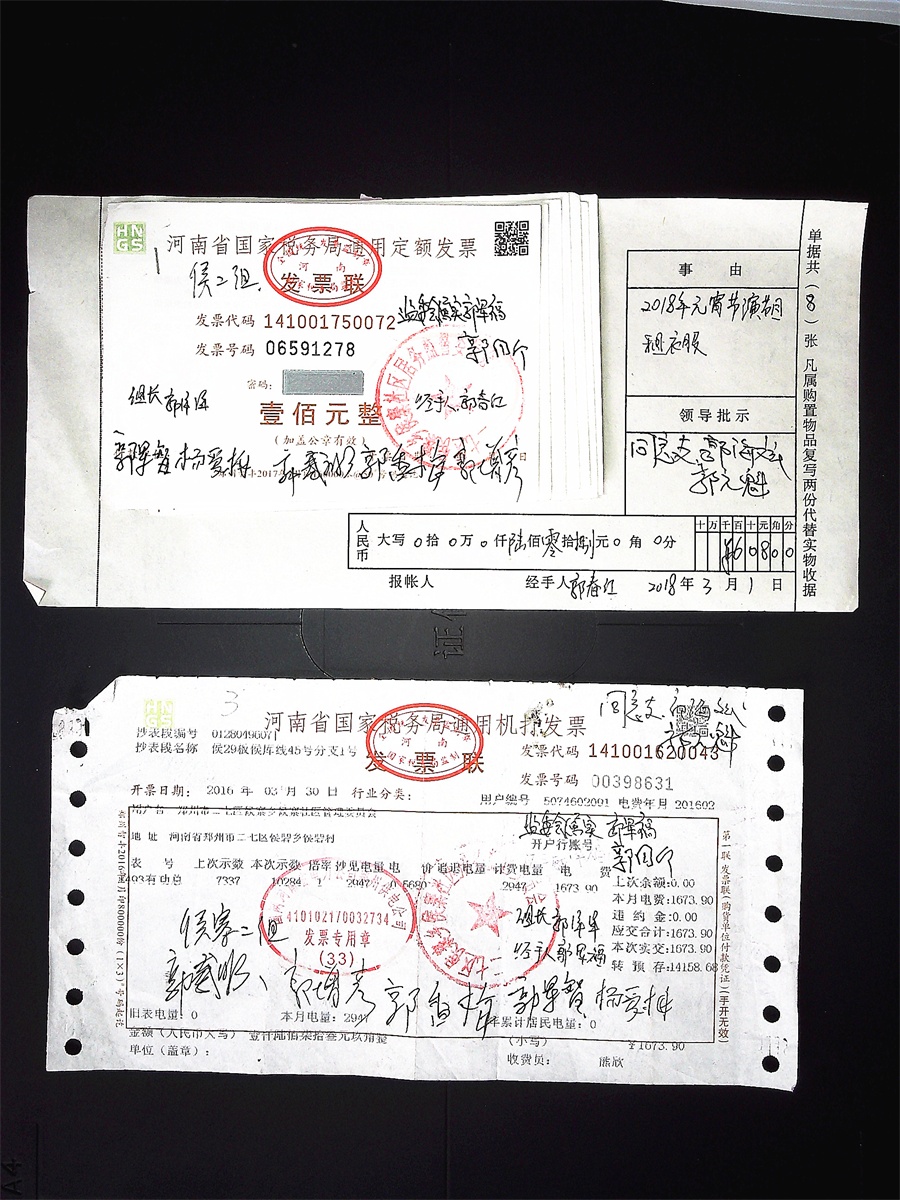 HN
GS
河南省国家税务局通用定额发票
侯二组
发票联
发票代码 141001750072
发票号码 06591278
监委会属实 郭军福
密码：
组长
经手人 郭春江
壹佰元整
（加盖公章有效）
事由
2018年元宵节演节目
租衣服
领导批示
同意支
郭元魁
人民币 大写 0拾0万0仟陆佰零拾捌元0角0分
十万千百十元角分
¥60800
报帐人 经手人 郭春江 2018年3月1日
单据共（8）张 凡属购置物品复写两份代替实物收据
证
HN
GS
3
河南省国家税务局通用机打发票
同意支
抄表段编号 0128049607
抄表段名称 侯29板侯库线45号分支1号
发票联
发票代码 141001620043
发票号码 00398631
开票日期： 2016 年 03 月 30 日 行业分类：
用户编号 5074602001 电费年月 201602
监委会属实 郭军福
地址 河南省郑州市二七区侯寨乡侯寨村
开户行账号
表 号 上次示数 本次示数 倍率 抄见电量 电 价 追退电量 计费电量 电 费
7337 10284 1 2947 0.5680 2947 1673.90
上次余额:0.00
本月电费:1673.90
违约金:0.00
应交合计:1673.90
本次实交:1673.90
转预存:14158.68
410102170032734
发票专用章
(33)
侯寨二组
组长
经手人 郭军福
杨爱梅
旧表电量：0 本月电量：2947 年累计居民电量：0
金额（人民币大写） 壹仟陆佰柒拾叁元玖角整
（小写） ¥1673.90
单位（盖章）：
收费员： 陈欣
第一联 发票联（购货单位付款凭证）（手开无效）
A4